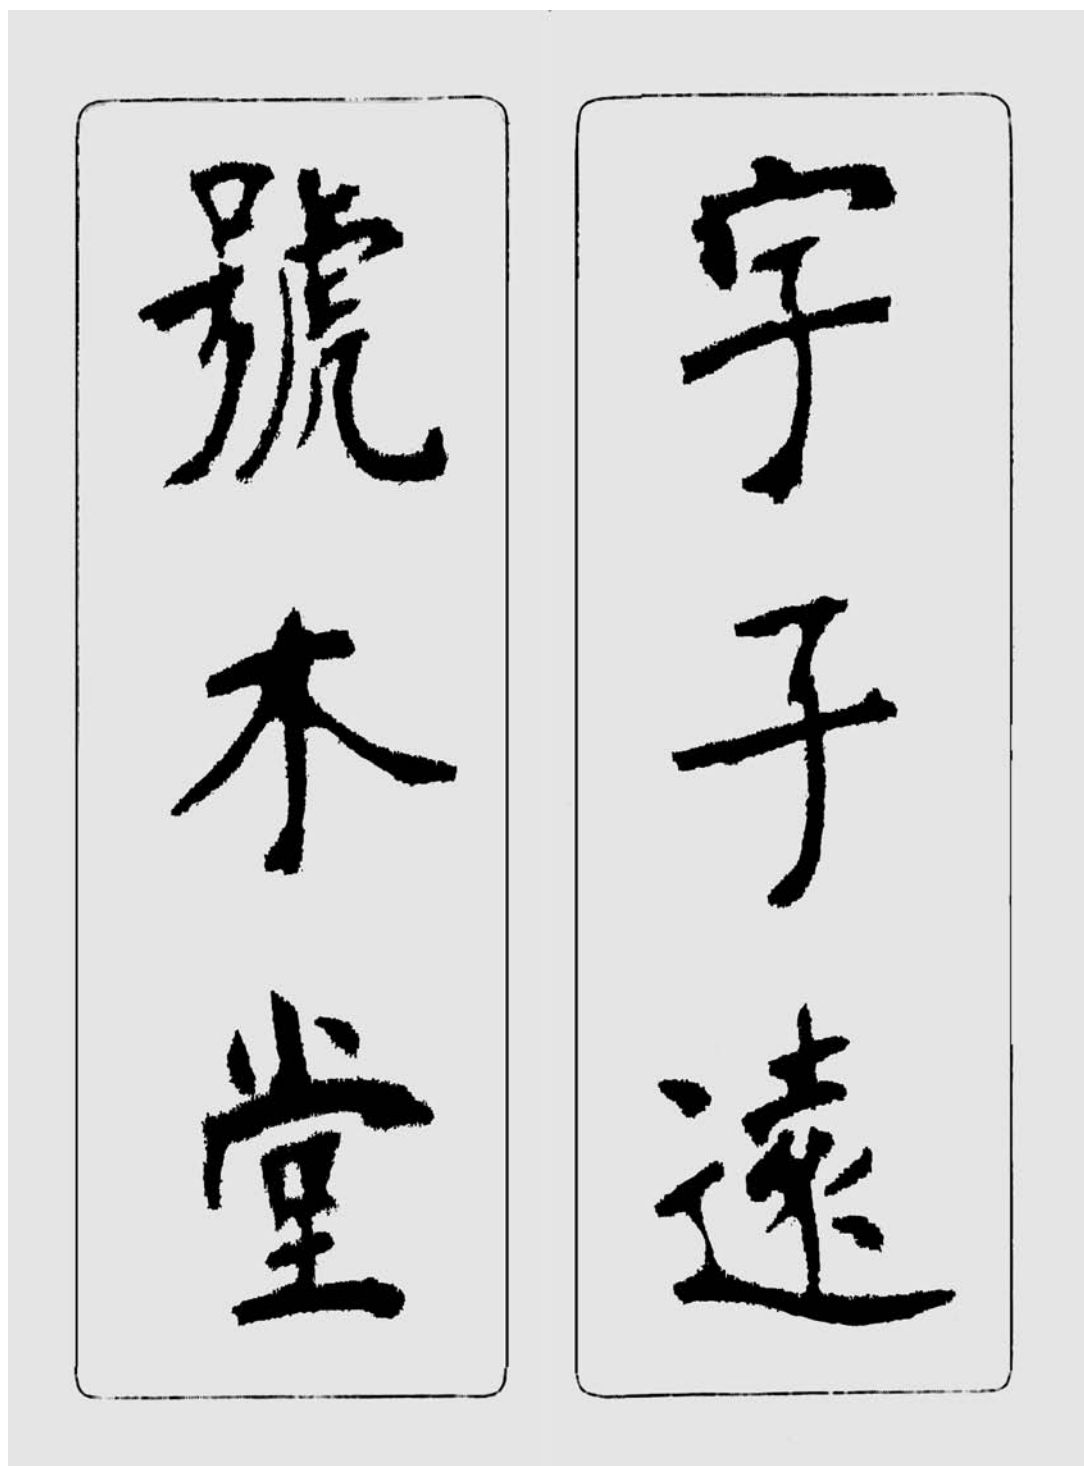 字子遠
號木堂